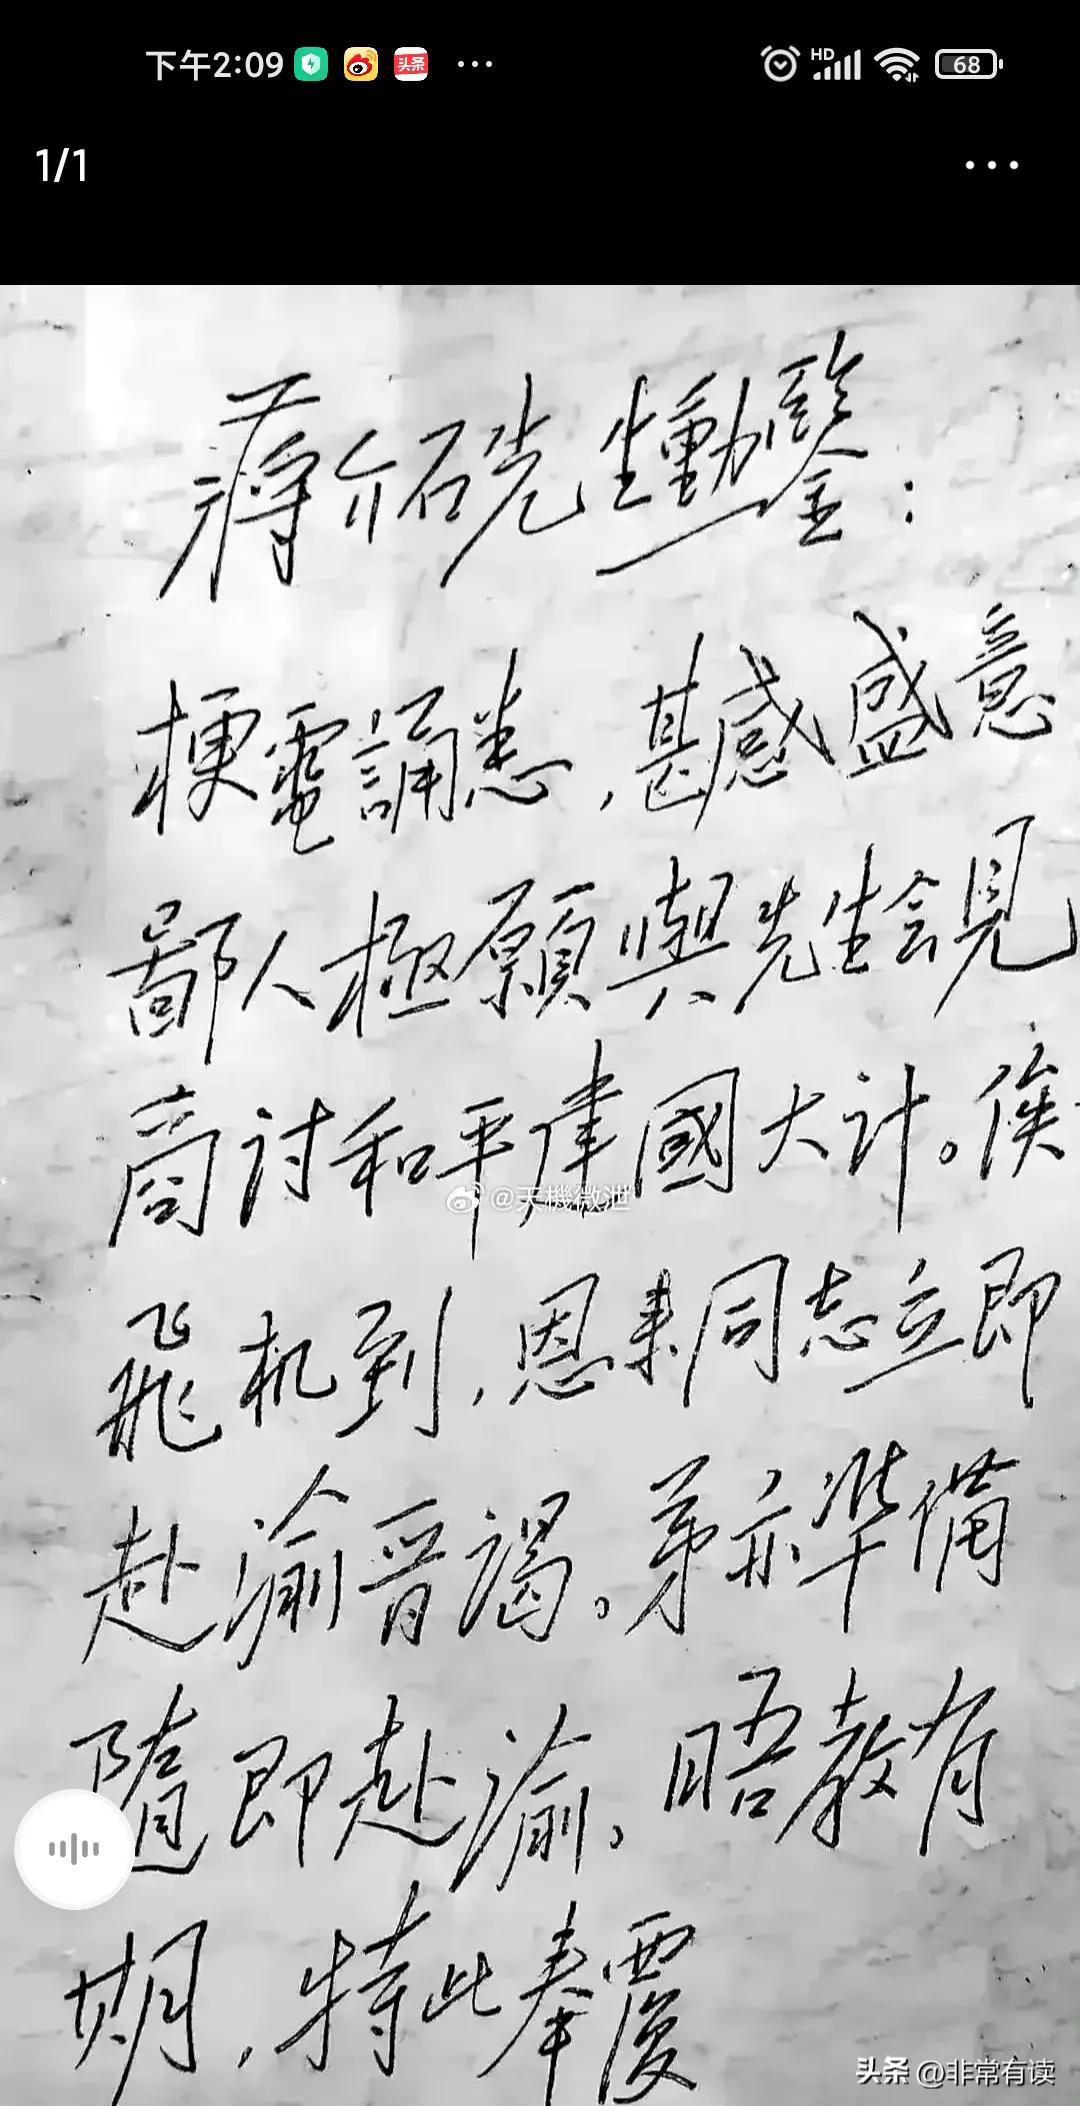 下午2:09 头条 ... HD 68
1/1 ...
蒋介石先生勳鑒：
梗電誦悉，甚感盛意
鄙人極願與先生会見
商討和平建國大计。俟
飛机到，恩来同志立即
@天機微泄
赴渝晋谒。弟亦準備
隨即赴渝。晤教有
期，特此奉覆
头条 @非常有读